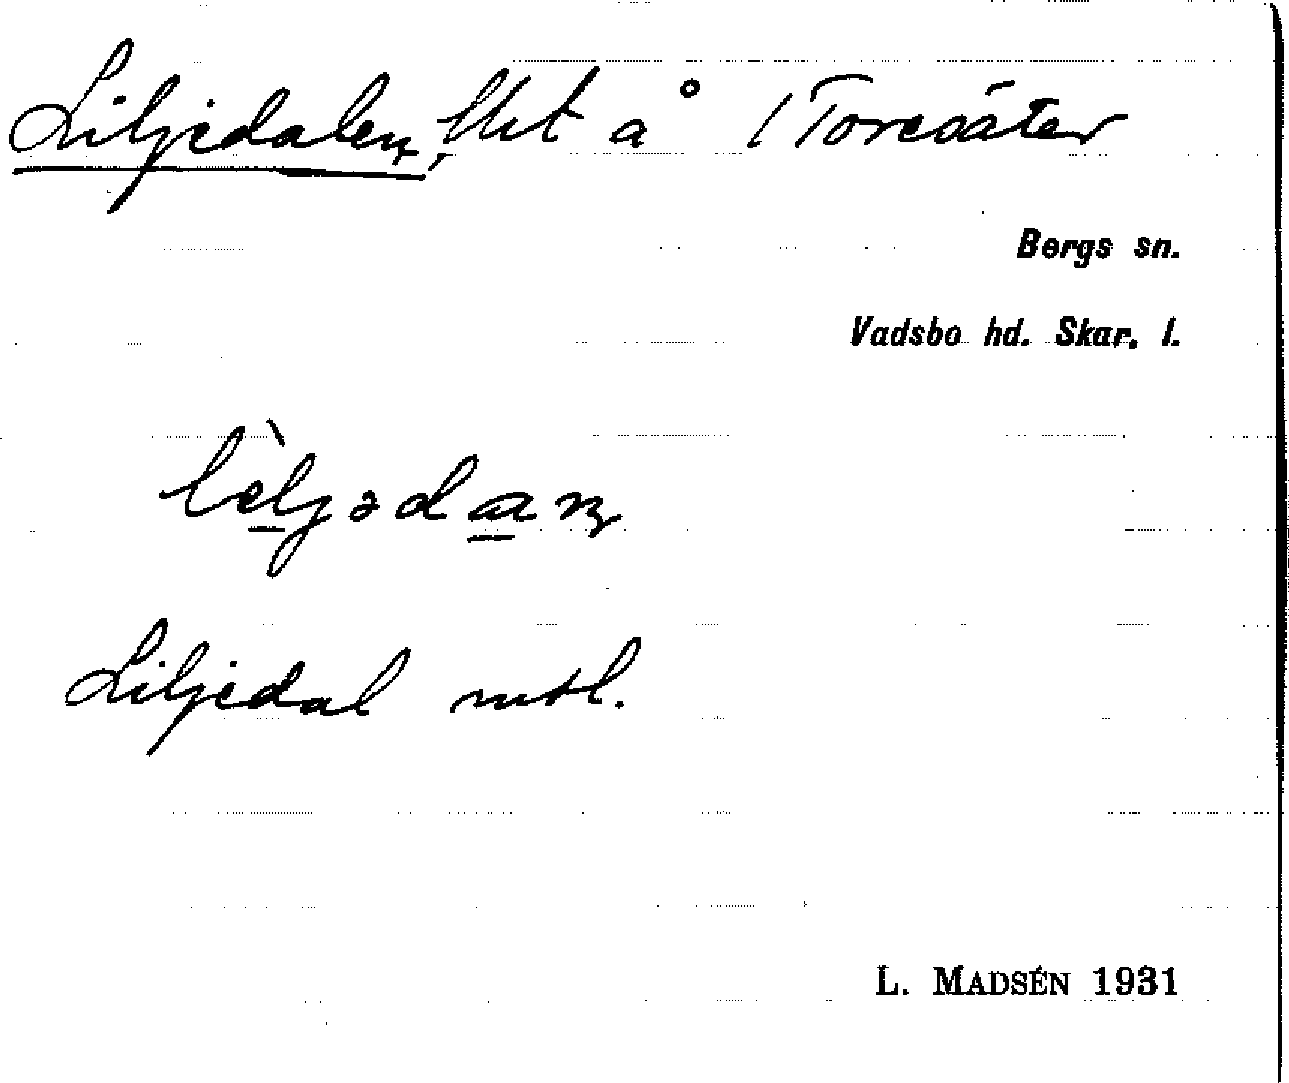 Liljedalen, lht å 1 Toresäter
Bergs sn.
Vadsbo hd. Skar. l.
Liljedal mtl.
L. MADSÉN 1931